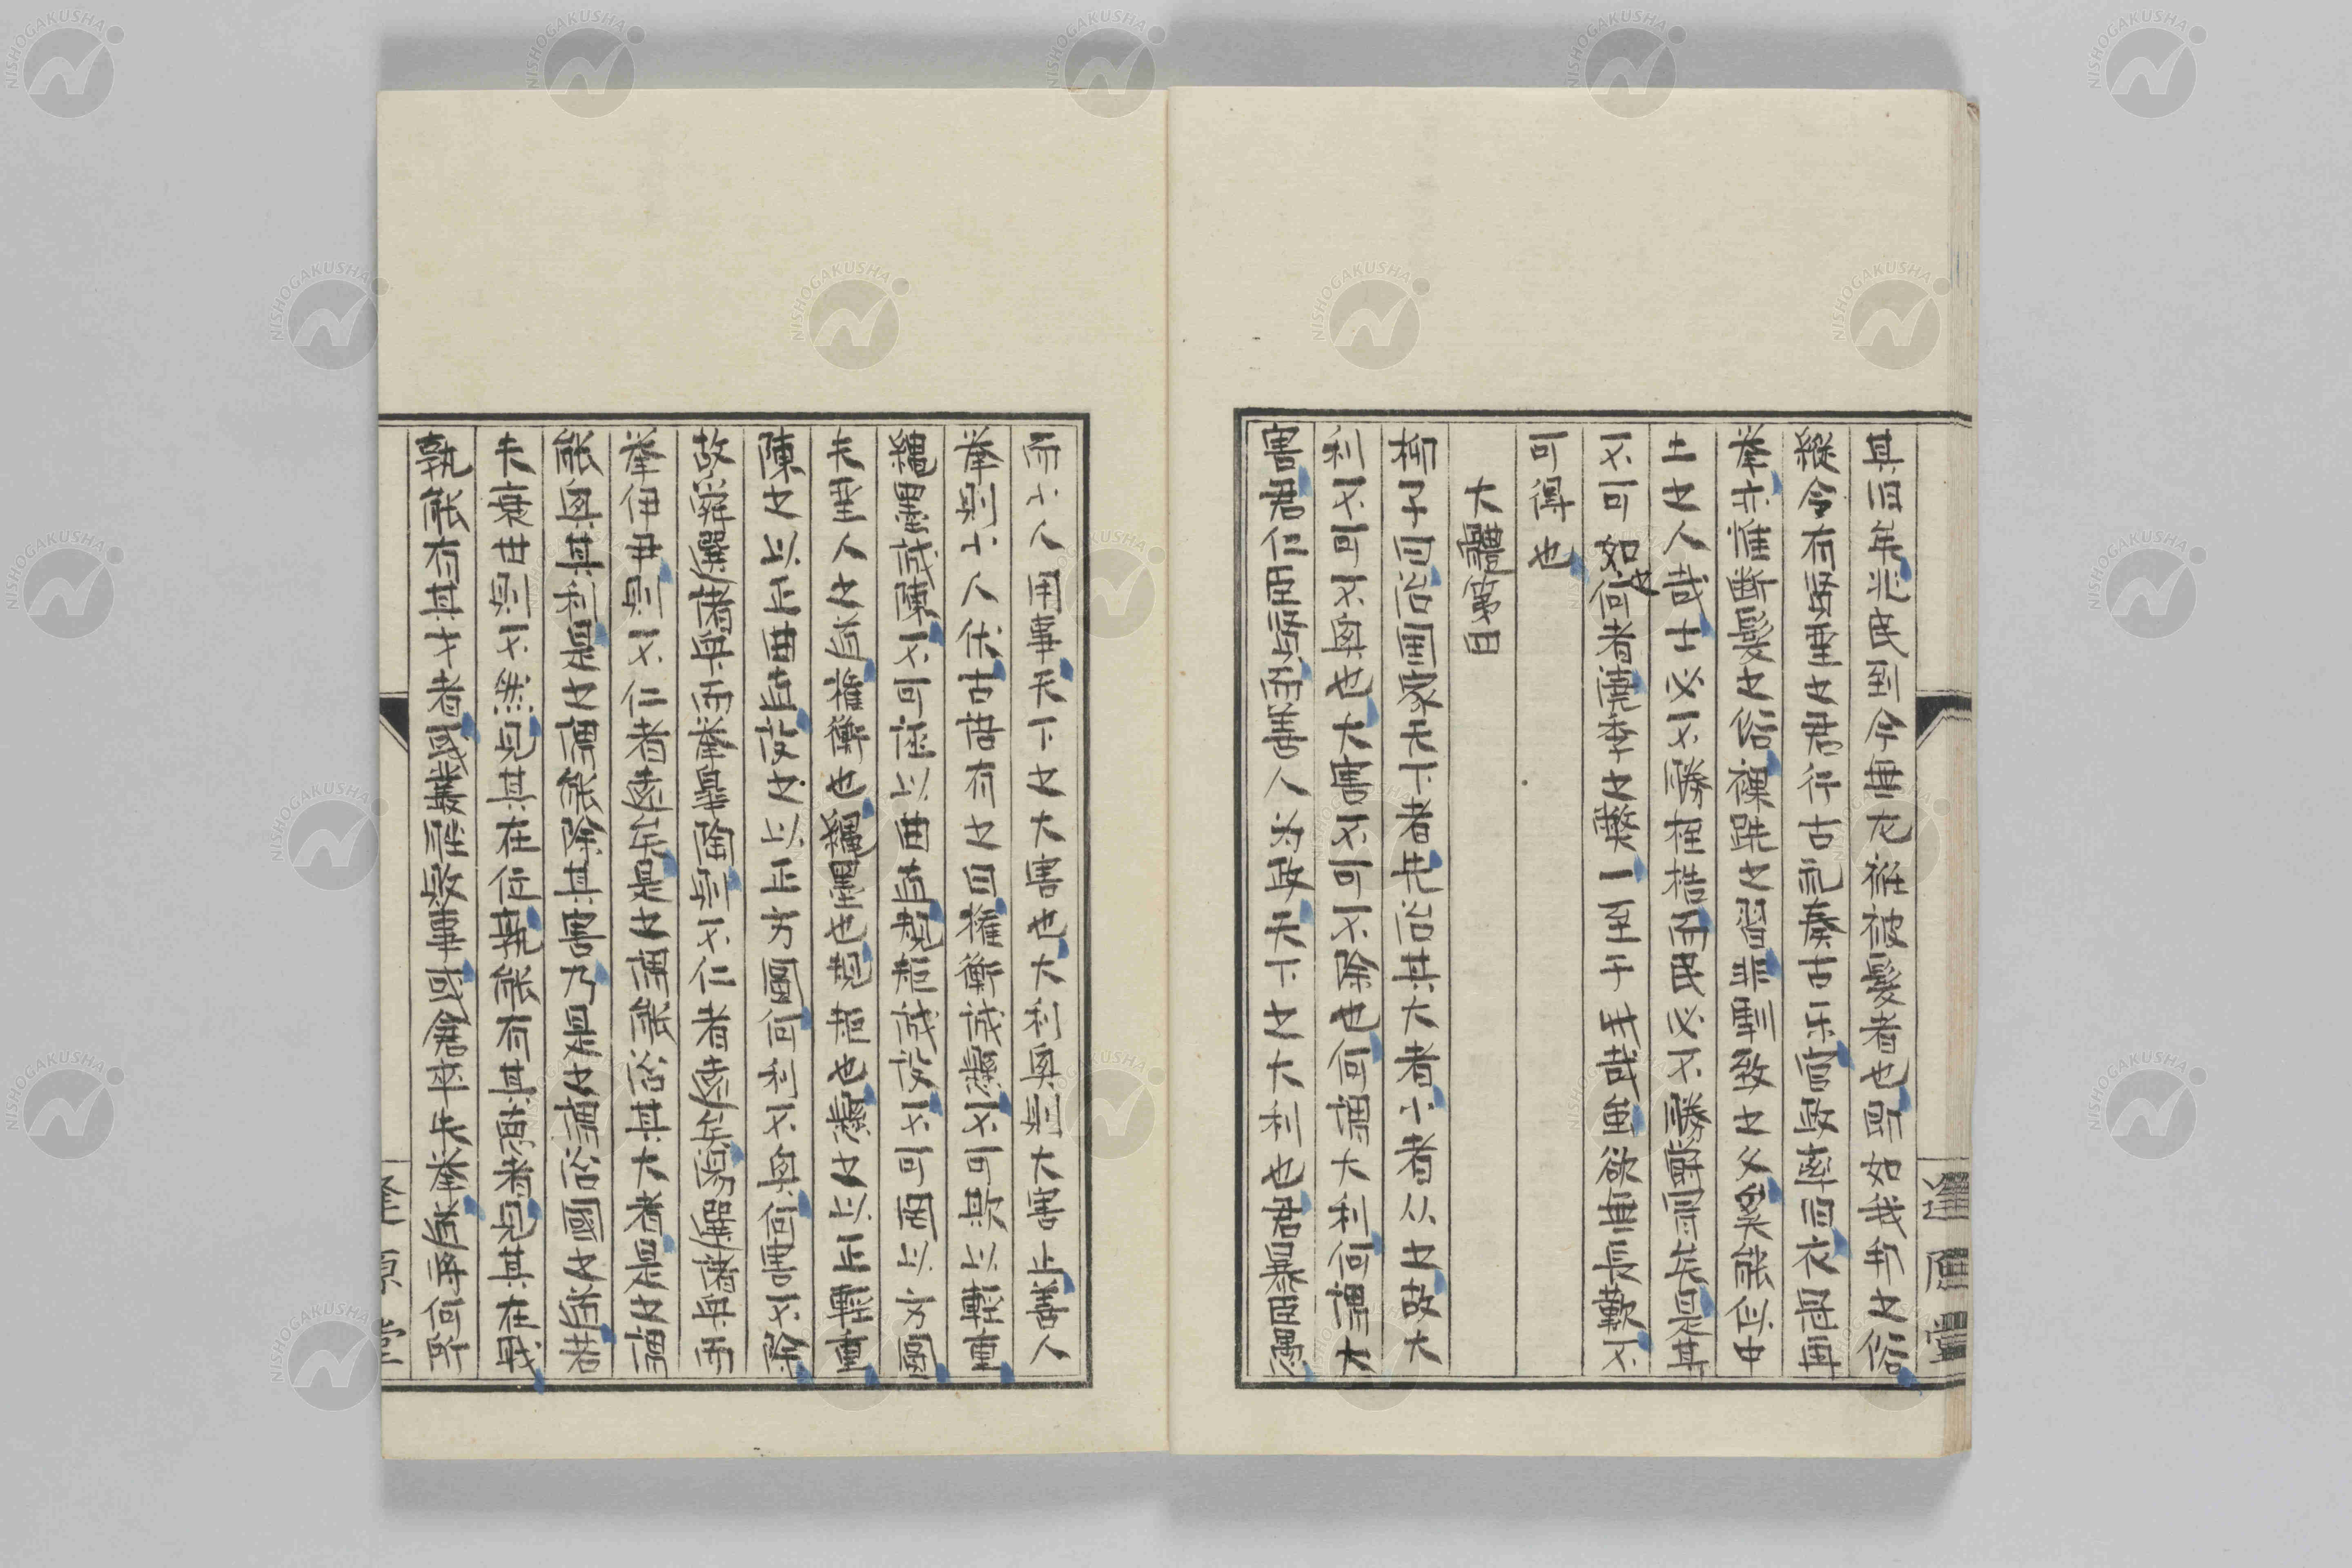 其旧矣兆民到今無尨雑被髪者也即如我邦之俗
縦令有賢聖之君行古礼奏古楽官政率旧衣冠再
挙亦惟断髪之俗裸跣之習非剃致之父奚能似中
土之人哉士必不勝桎梏而民必不勝窘辱矣是其
不可如之何者衰季之弊一至于此哉雖欲無長歎不
可得也
大體第四
柳子曰治国家天下者先治其大者小者从之故大
利不可不興也大害不可不除也何謂大利何謂大
害君仁臣賢而善人为政天下之大利也君暴臣愚
逢原堂
而小人用事天下之大害也大利興則大害止善人
挙則小人伏古語有之曰權衡誠懸不可欺以輕重
繩墨誠陳不可誣以曲直規矩誠設不可罔以方圓
夫聖人之道權衡也繩墨也規矩也懸之以正輕重
陳之以正曲直設之以正方圓何利不興何害不除
故舜選諸衆而挙皐陶則不仁者遠矣湯選諸衆而
挙伊尹則不仁者遠矣是之謂能治其大者是之謂
能興其利是之謂能除其害乃是之謂治國之道若
夫衰世則不然見其在位孰能有其悳者見其在職
孰能有其才者或叢脞敗事或倉卒失挙道將何所